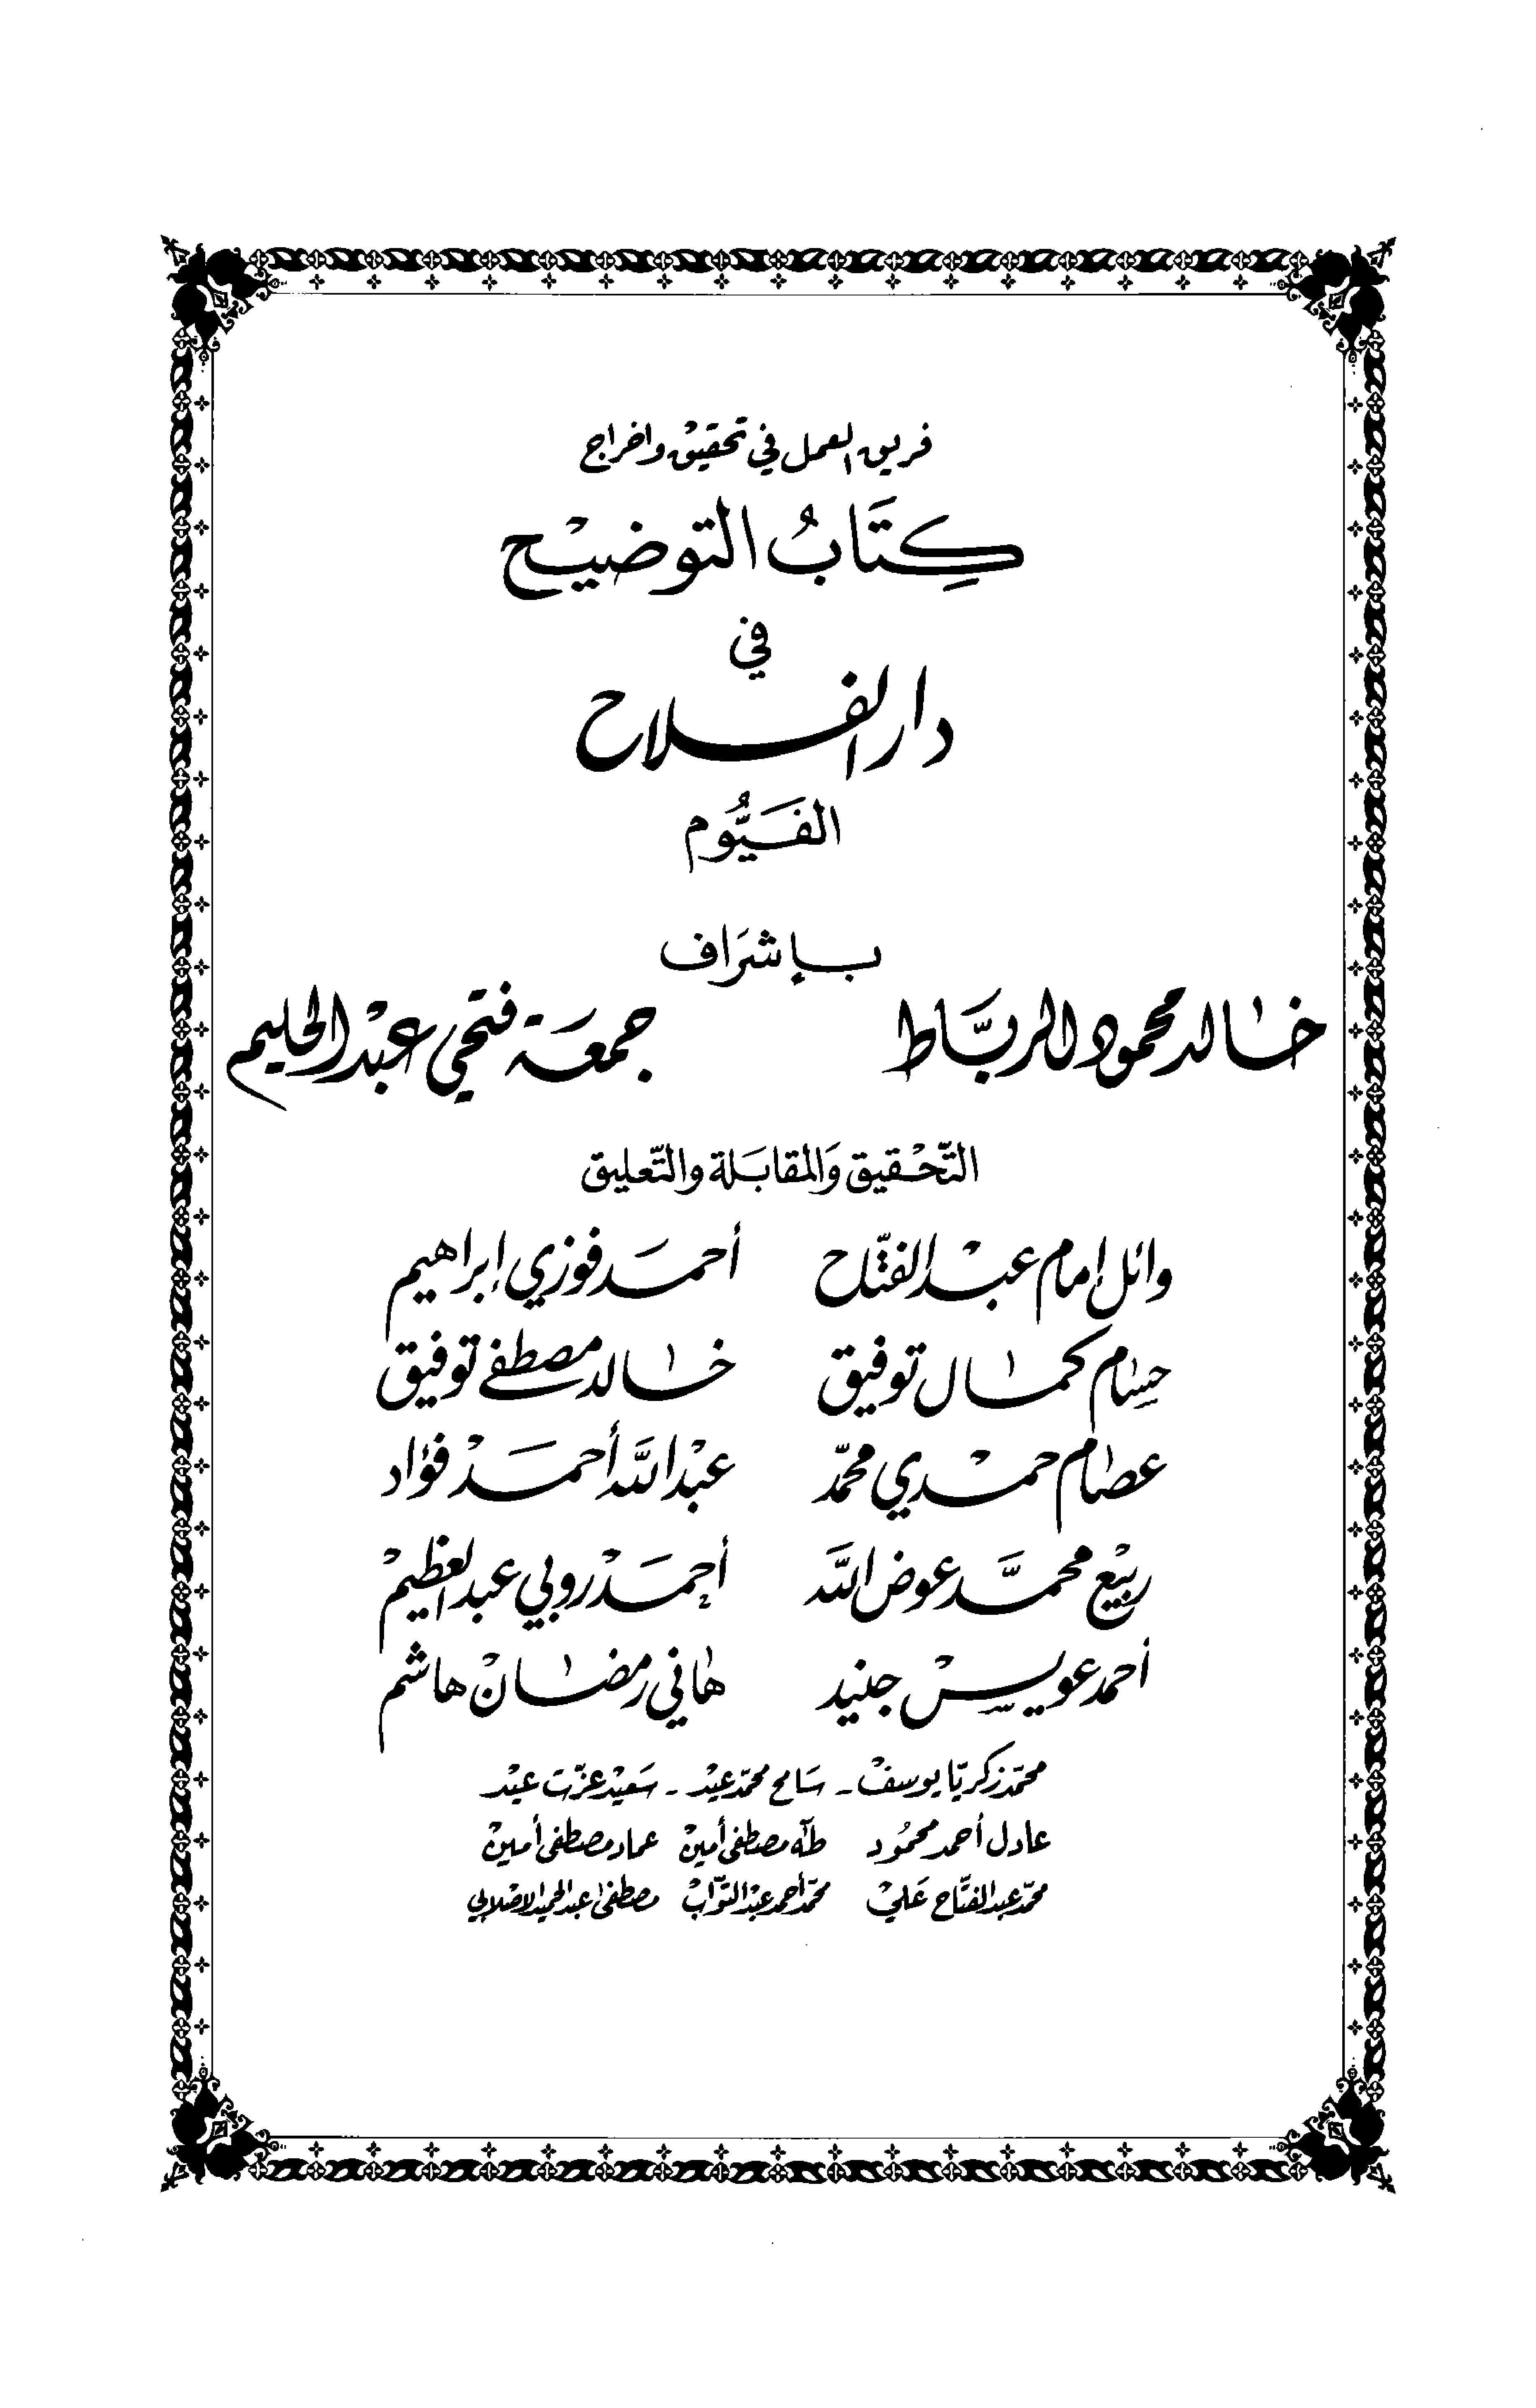 فريق العمل في تحقيق وإخراج
كِتَابُ التوضيْح
في
دار الفلاح
الفَيُّوم
بإشرَاف
خالد محمود الربَّاط جمعَة فتحي عبْد الحليم
التَّحْقيق وَالمقابَلة والتَّعليق
وائل إمام عبْد الفتَّاح أحمَد فوزي إبراهيم
حسام كمال توفيق خالد مصطفى توفيق
عصام حمْدي محمَّد عبْد اللَّه أحمَدْ فؤاد
ربيْع محمَّد عوض اللَّه أحمَدْ روبي عبد العظيمْ
أحمد عويسْ جنيد هاني رمضانْ هاشم
محمَّد زكريَّا يوسفْ - سَامح محمَّد عيْد - سَعيْد عزَّت عيْد
عادل أحمد محمُود طه مصطفى أمينْ عماد مصطفى أمينْ
محمَّد عبد الفتَّاح عَليْ محمَّد أحمد عبْد التوَّابْ مصطفى عبد الحميد